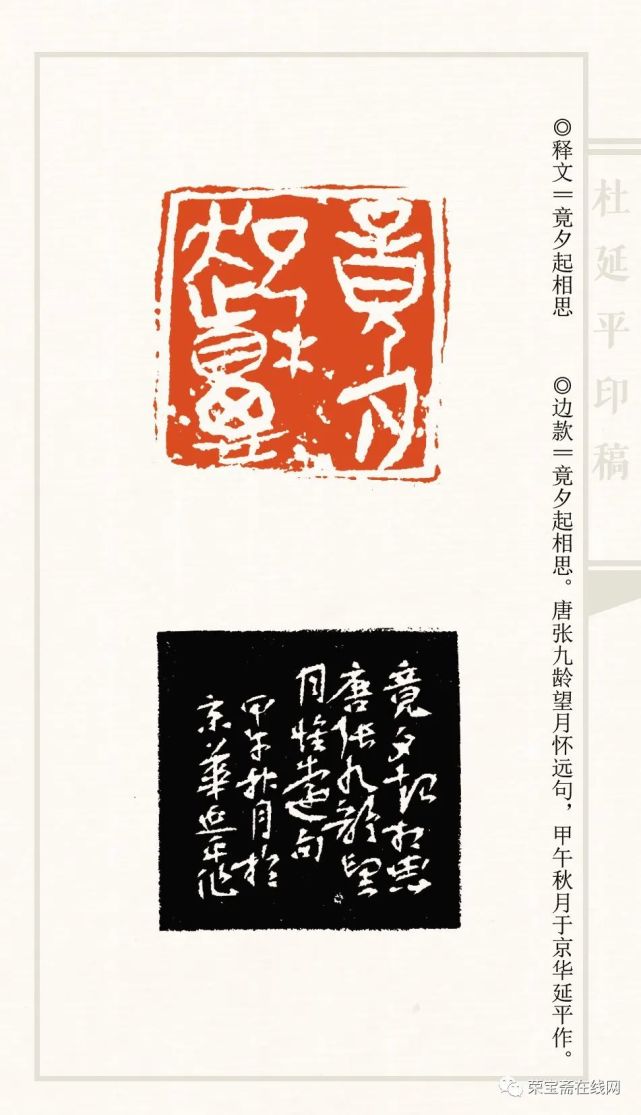 ◎释文＝竟夕起相思
◎边款＝竟夕起相思。唐张九龄望月怀远句，甲午秋月于京华延平作。
杜延平印稿
竟夕起相思
竟夕起相思
唐张九龄望
月怀远句
甲午秋月於
京華延平作
荣宝斋在线网